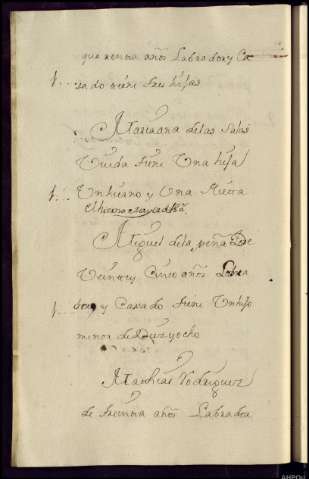 quarenta años Labrador y Ca
1... sado tiene tres hijas
Mariana de las Salas
Viuda tiene Una hija
1... Un hierno y Una Nieta
el hierno es ayudador
Miguel de la peña de
Veinte y Cinco años Labra
1... dor y Casado tiene Un hijo
menor de Diez y ocho
Mathias Rodriguez
de treinta años Labrador
AHPGU